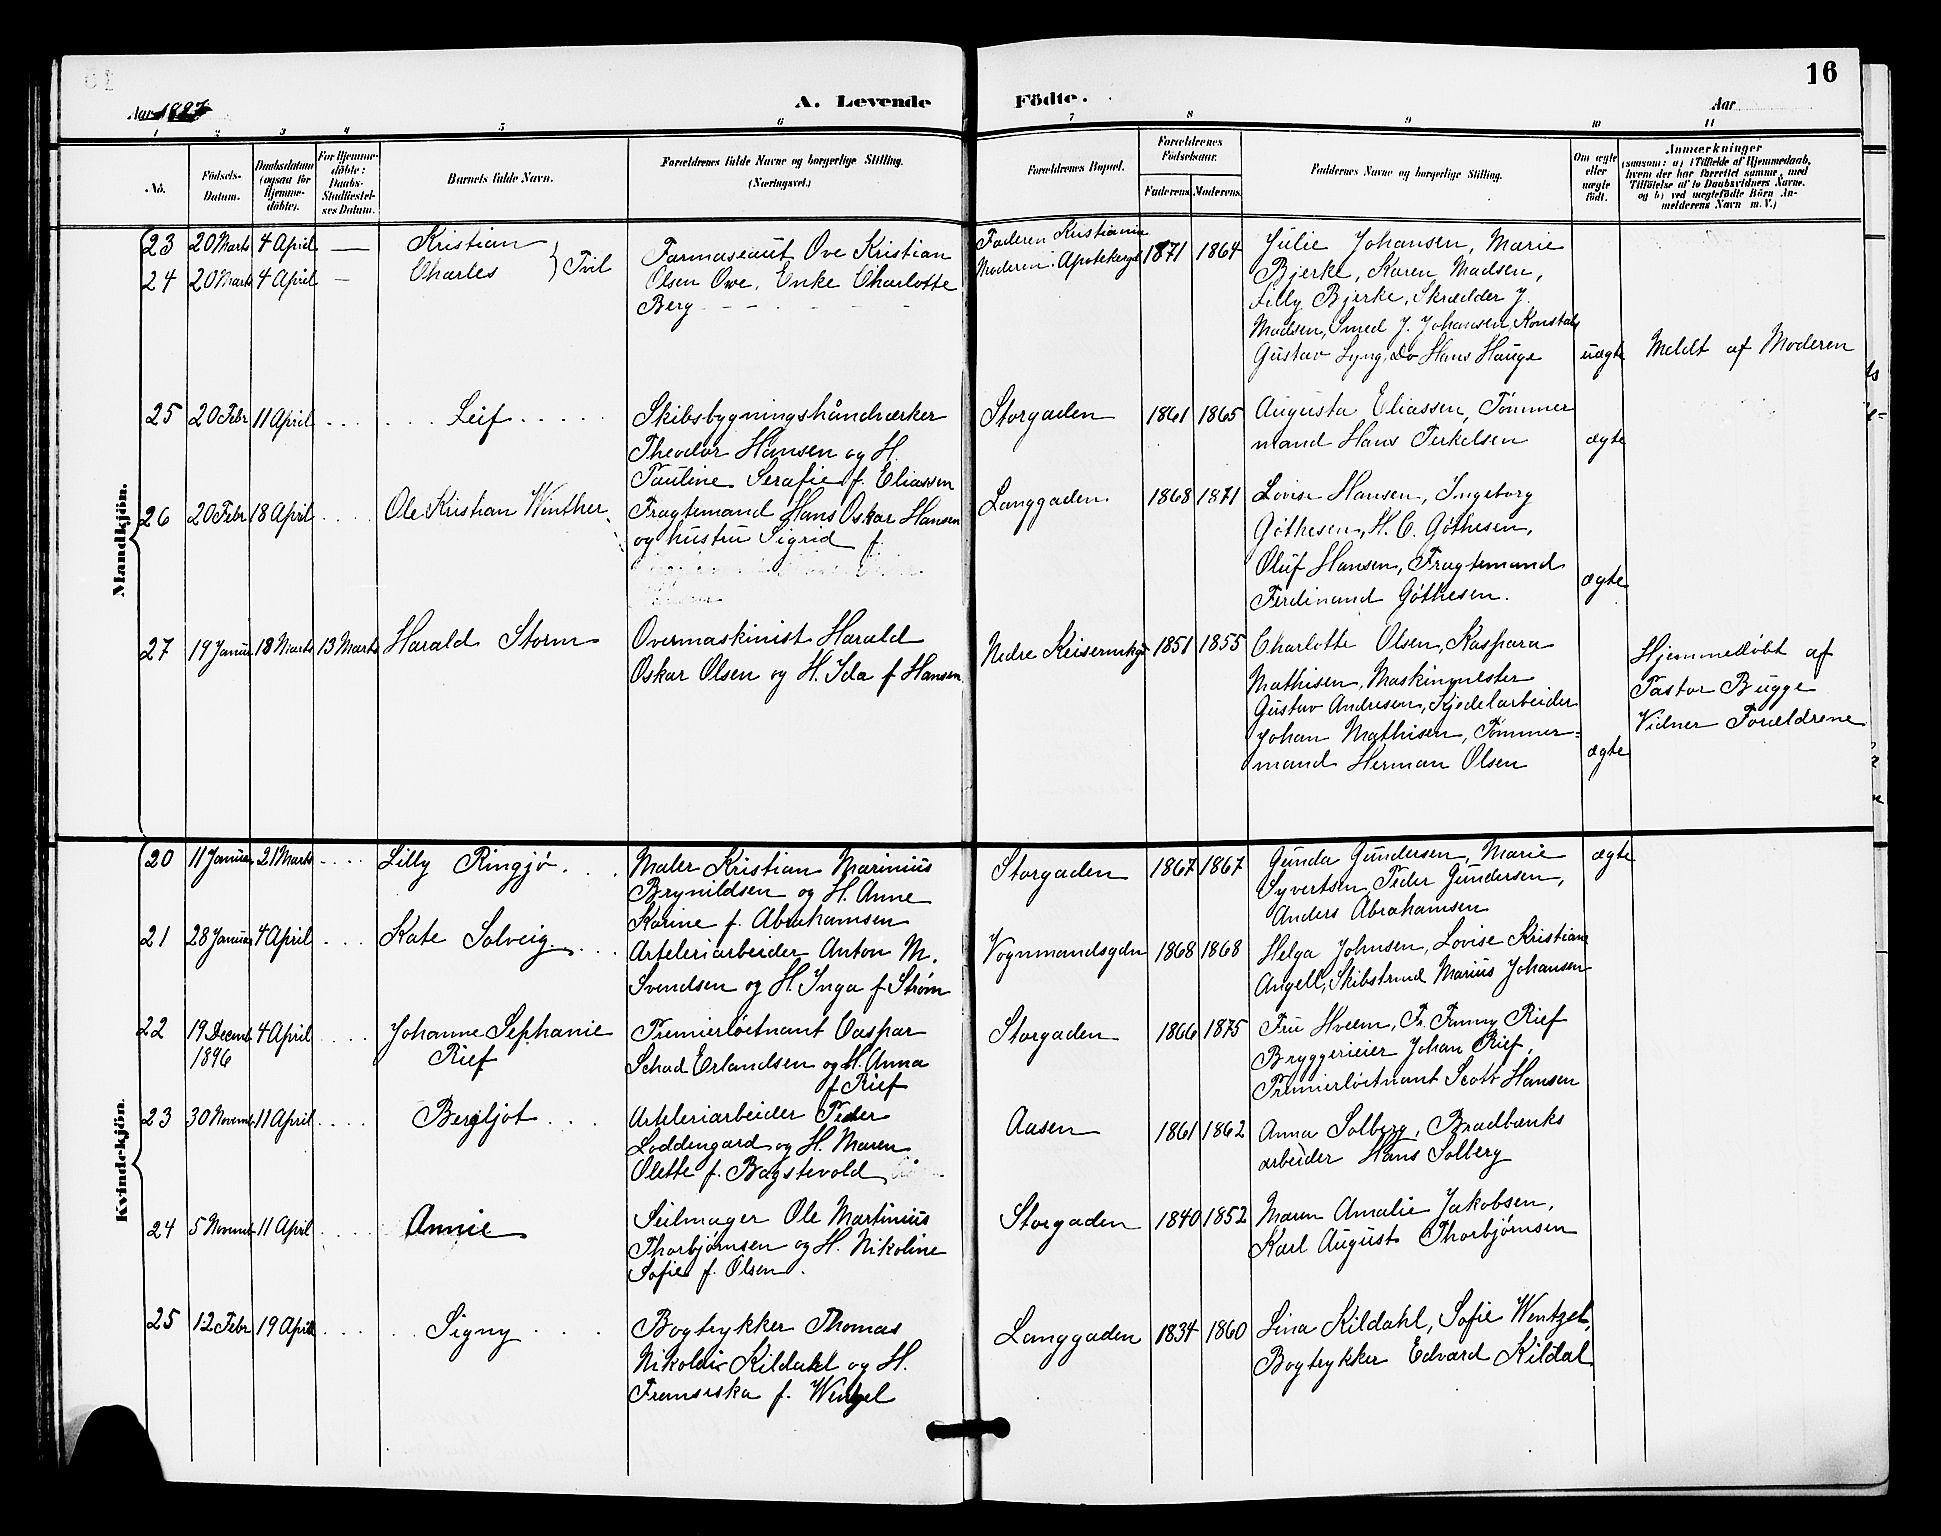 16
Aar 1897
A. Levende Födte.
Aar
1 2 3 4 5 6 7 8 9 10 11
No.
Födsels-
Datum.
Daabsdatum
(ogsaa for
Hjemme-
döbte).
For Hjemme-
döbte:
Daabs-
Stadfæstel-
ses Datum.
Barnets fulde Navn.
Forældrenes fulde Navne og borgerlige Stilling.
(Næringsvei.)
Forældrenes Bopæl.
Forældrenes
Födselsaar.
Faderens. Moderens.
Faddernes Navne og borgerlige Stilling.
Om ægte
eller
uægte
født.
Anmærkninger
(saasom: a) i Tilfælde af Hjemmedaab,
hvem der har forrettet samme, med
Tilföielse af to Daabsvidners Navne.
og b) ved uægtefödte Börn An-
melderens Navn m. V.)
Mandkjön.
23 20 Marts 4 April — Kristian
24 20 Marts 4 April — Charles } Tvil
Farmaseaut Ove Kristian
Olsen Owe, Enke Charlotte
Berg
Faderen Kristiania
Moderen: Apotekergd
1871 1864
Julie Johansen, Marie
Bjerke, Karen Madsen,
Lilly Bjerke, Skrædder J.
Madsen, Smed J. Johansen, Konstab
Gustav Lyng, do Hans Hauge
uægte
Meldt af Moderen
25 20 Febr 11 April Leif
Skibsbygningshåndværker
Theodor Hansen og H.
Pauline Serafie f. Eliassen
Storgaden 1861 1865
Augusta Eliassen, Tømmer
mand Hans Terkelsen
ægte
26 20 Febr 18 April Ole Kristian Winther
Fragtemand Hans Oskar Hansen
og hustru Sigrid f.
Langgaden 1868 1871
Lovise Hansen, Ingeborg
Gøthesen, H. C. Gøthesen,
Oluf Hansen, Fragtemand
Ferdinand Gøthesen.
ægte
27 19 Januar 18 Marts 13 Marts Harald Storm
Overmaskinist Harald
Oskar Olsen og H. Ida f Hansen
Nedre Keisemkgd 1851 1855
Charlotte Olsen, Kaspara
Mathisen, Maskinmester
Gustav Andresen, Kjedelarbeider
Johan Mathisen, Tømmer=
mand Herman Olsen
ægte
Hjemmedøbt af
Pastor Bugge
Vidner Forældrene
Kvindekjön.
20 11 Januar 21 Marts Lilly Ringjø
Maler Kristian Marinius
Brynildsen og H. Anne
Karine f. Abrahamsen
Storgaden 1867 1867
Gunda Gundersen, Marie
Syvertsen, Peder Gundersen,
Anders Abrahamsen
ægte
21 28 Januar 4 April Kate Solveig
Arteleriarbeider Anton M.
Svendsen og H. Inga f Strøm
Vognmandsgdn 1868 1868
Helga Johnsen, Lovise Kristian
Angell, Skibstmd Marius Johansen
22 19 Decemb 4 April Johanne Sephanie
1896 Rief
Premierløitnant Caspar
Schad Erlandsen og H. Anna
f Rief
Storgaden 1866 1875
Fru Hveem, Fr. Fanny Rief
Bryggerieier Johan Rief,
Premierløitnant Scott Hansen
23 30 Novemb 11 April Bergljot
Arteleriarbeider Peder
Loddengaard og H. Maren
Olette f. Bagstevold
Aasen 1861 1862
Anna Solberg, Bradbænks
arbeider Hans Solberg
24 5 Novemb 11 April Annie
Seilmager Ole Martinius
Thorbjørnsen og H. Nikoline
Sofie f. Olsen.
Storgaden 1840 1852
Maren Amalie Jakobsen,
Karl August Thorbjørnsen
25 12 Febr 19 April Signy
Bogtrykker Thomas
Nikolai Kildahl og H.
Fransiska f. Wentzel
Langgaden 1834 1860
Lina Kildahl, Sofie Wentzel,
Bogtrykker Edvard Kildal